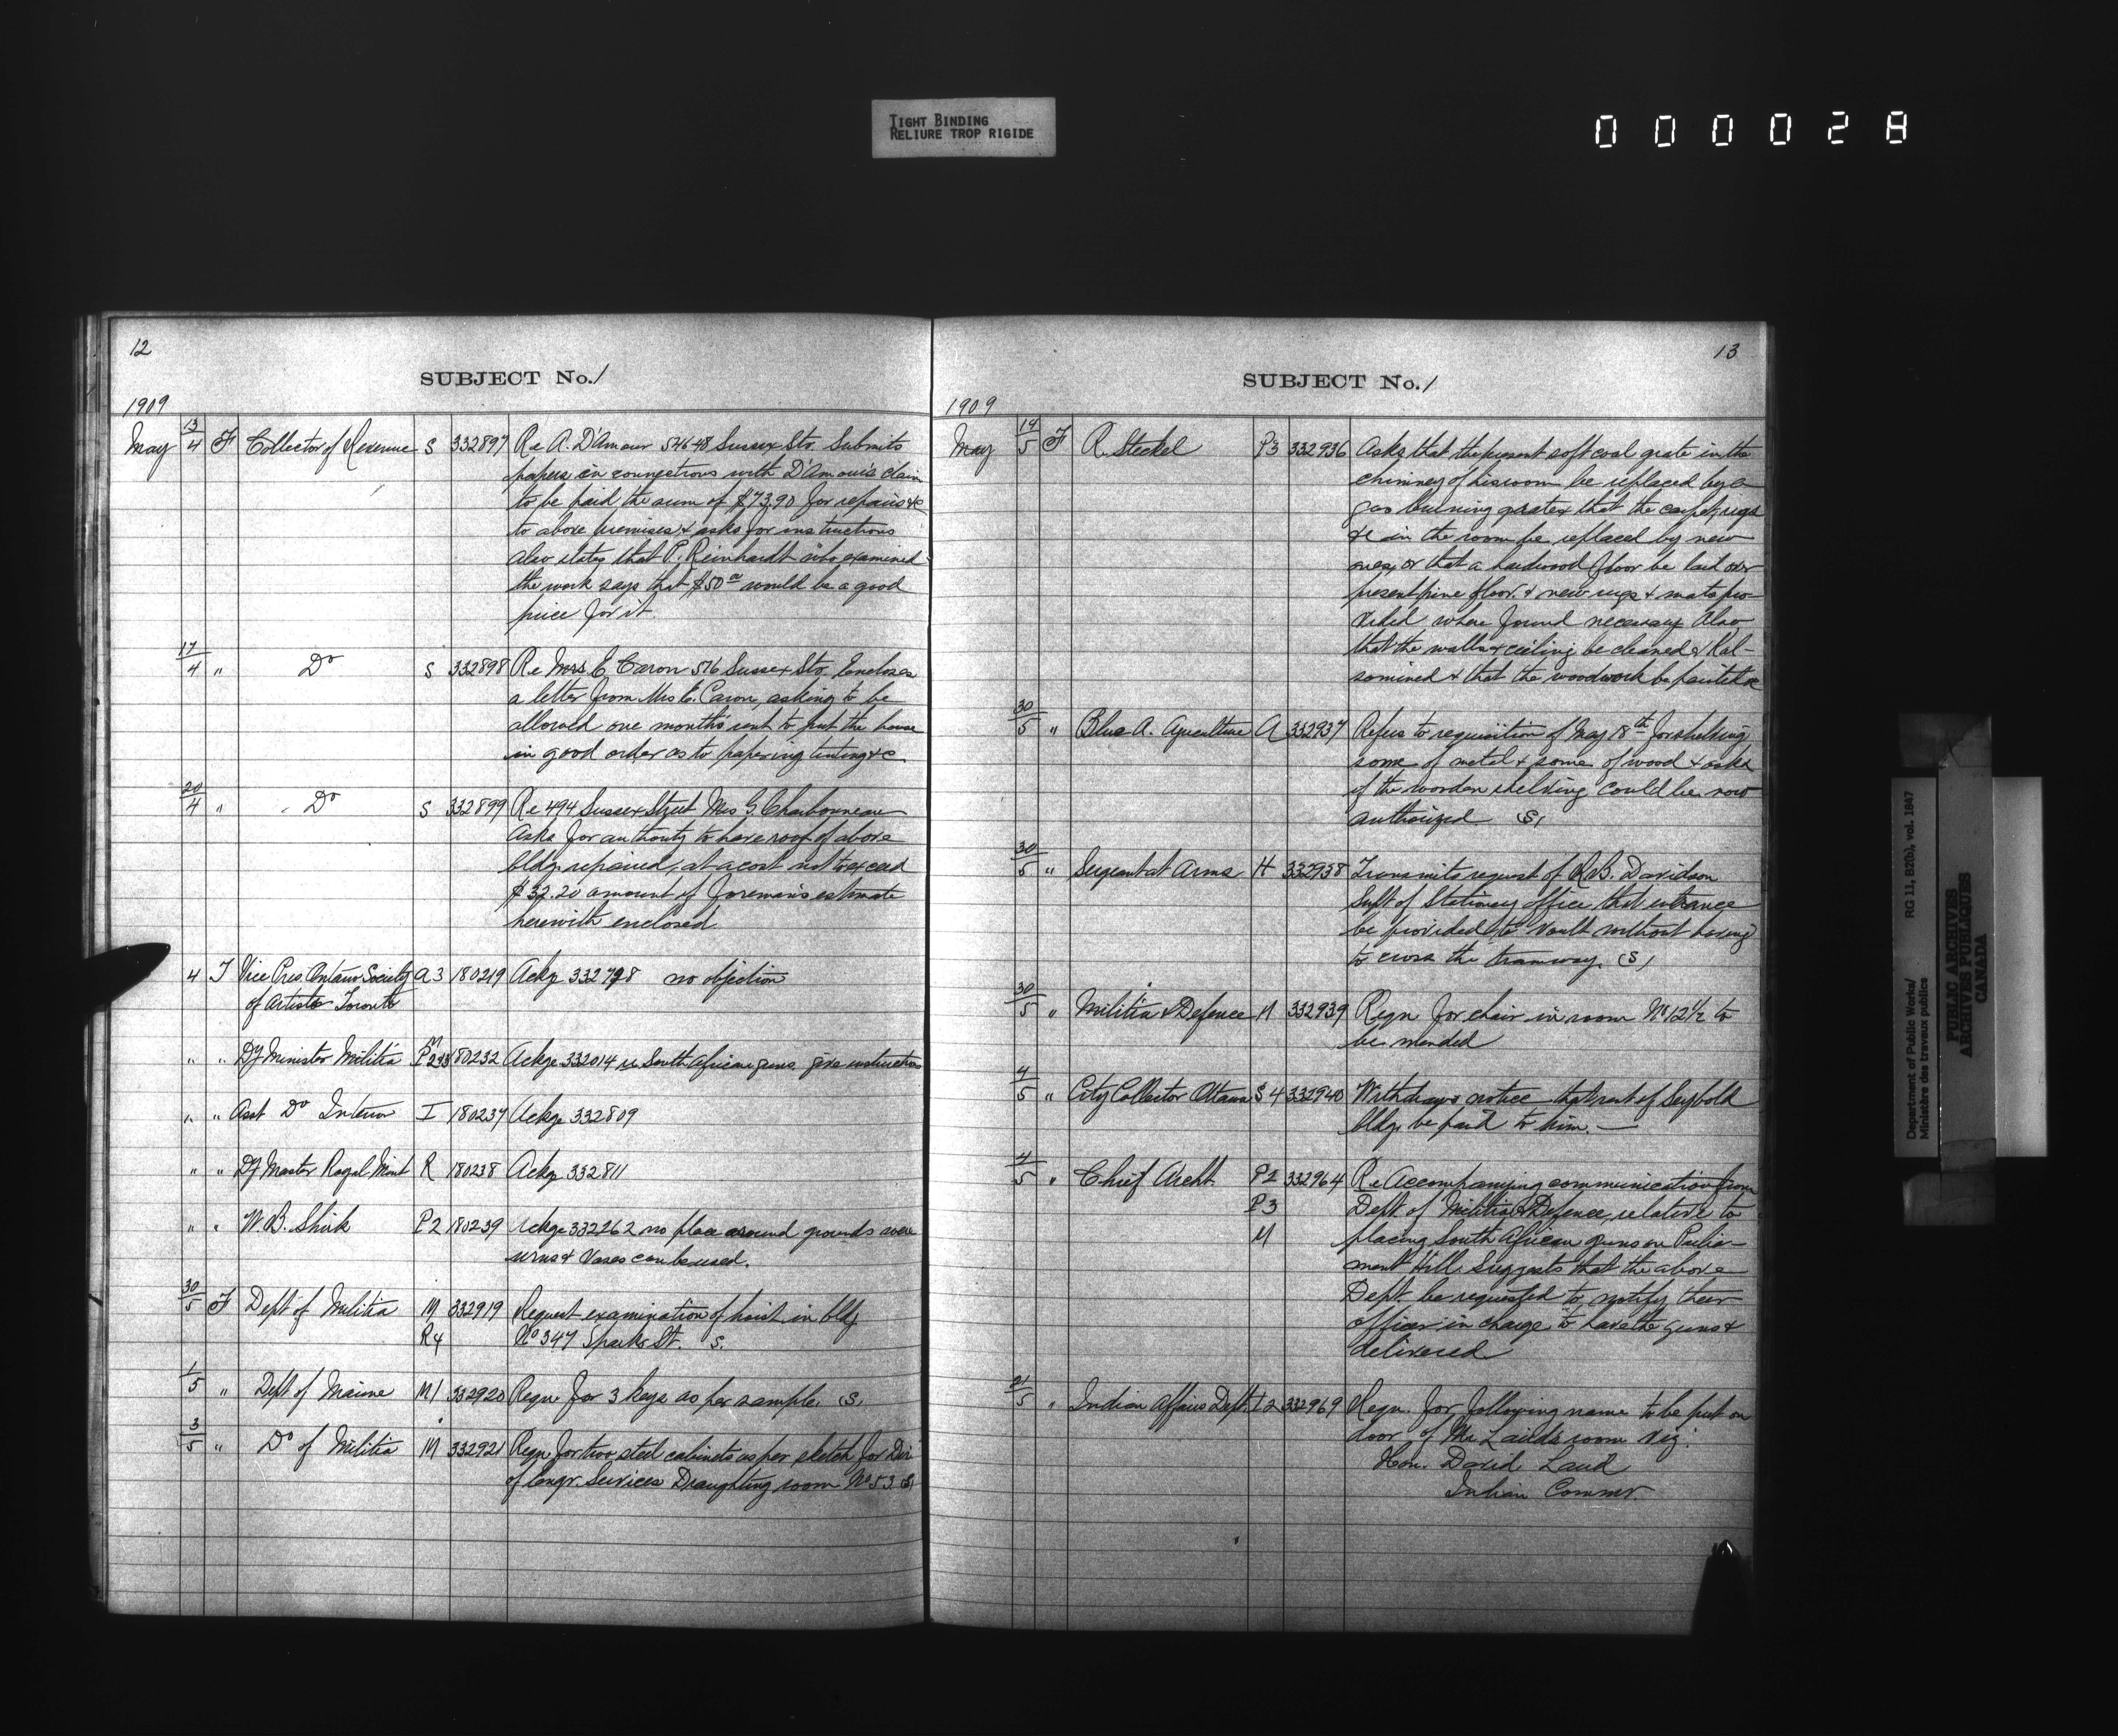 TIGHT BINDING
RELIURE TROP RIGIDE
0 0 0 0 2 8
12
SUBJECT No. 1
1909
May 13/4 F Collector of Revenue S 332897 Re A. D'Amour 546-48 Sussex Sts. Submits
papers in connections with D'Amour's claim
to be paid the sum of $73.90 for repairs &c
to above premises & asks for instructions
also states that P. Reinhardt who examined
the work says that $50.00 would be a good
price for it.
17/4 " Do S 332898 Re Mrs E. Caron 516 Sussex Sts. Encloses
a letter from Mrs E. Caron, asking to be
allowed one month's rent to put the house
in good order as to papering tinting &c
20/4 " Do S 332899 Re 494 Sussex Street Mrs G. Charbonneau
Asks for authority to have roof of above
bldg repaired, at a cost not to exceed
$32.20 amount of foreman's estimate
herewith enclosed.
4 T Vice Pres Ontario Society A3 180219 Ackge 332798 no objection
of Artists Toronto
" " Dy Minister Militia M P233 180232 Ackge 332014 re South African guns. give instructions
" " Asst Do Interior I 180237 Ackge 332809
" " Dy Master Royal Mint R 180238 Ackge 332811
" " W. B. Shirk P2 180239 Ackge 332262 no place around grounds were
urns & Vases can be used.
30/5 F Dept of Militia M 332919 Request examination of hoist in bldg
R4 No 347 Sparks St. S.
1/5 " Dept of Marine M1 332920 Reqn for 3 keys as per sample. (S)
3/5 " Do of Militia M 332921 Reqn for two steel cabinets as per sketch for Dir
of Engr. Services Draughting room No 53. (S)
13
SUBJECT No. 1
1909
May 14/5 F R. Steckel P3 332936 Asks that the present soft coal grate in the
chimney of his room be replaced by a
gas burning grate & that the carpet, rugs
&c in the room be replaced by new
ones, or that a hardwood floor be laid over
present pine floor & new rugs & mats pro-
vided where found necessary. Also
that the walls & ceiling be cleaned & Kal-
somined & that the woodwork be painted &c
30/5 " Blue A. Agriculture A 332937 Refers to requisition of May 18th for shelving
some of metal & some of wood & asks
if the wooden shelving could be now
authorized. (S)
30/5 " Sergeant at Arms H 332938 Transmits request of R. B. Davidson
Supt of Stationery office that entrance
be provided to vault without having
to cross the tramway. (S)
30/5 " Militia & Defence M 332939 Reqn for chair in room No 12½ to
be mended
4/5 " City Collector Ottawa S4 332940 Withdraws notice that rent of Seybold
bldg be paid to him. —
4/5 " Chief Archt. P2 332964 Re Accompanying communication from
P3 Dept. of Militia & Defence, relative to
M placing South African guns on Parlia-
ment Hill. Suggests that the above
Dept. be requested to notify their
officer in charge to have the guns &
delivered
21/5 " Indian Affairs Dept. I2 332969 Reqn. for following name to be put on
door of Mr Laird's room viz:
Hon. David Laird
Indian Commr.
Department of Public Works/
Ministère des travaux publics
RG 11, B2(b), vol. 1847
PUBLIC ARCHIVES
ARCHIVES PUBLIQUES
CANADA